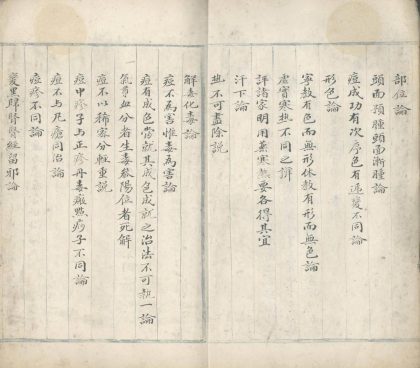 部位論
頭面預腫頭面漸腫論
痘成功有次序色有遞變不同論
形色論
寧教有色而無形休教有形而無色論
虛實寒熱不同之辨
評諸家明用藥寒熱要各得其宜
汗下論
熱不可盡除説
解毒化毒論
痘不為害惟毒為害論
痘有成色當就其成色成就之治法不可執一論
氣有血分者生毒参陽位者死解
痘不以稀密分輕重説
痘中疹子與正疹丹毒癍㸃痧子不同論
痘不与凡瘡同治論
痘疹不同論
變黑歸腎腎經留邪論